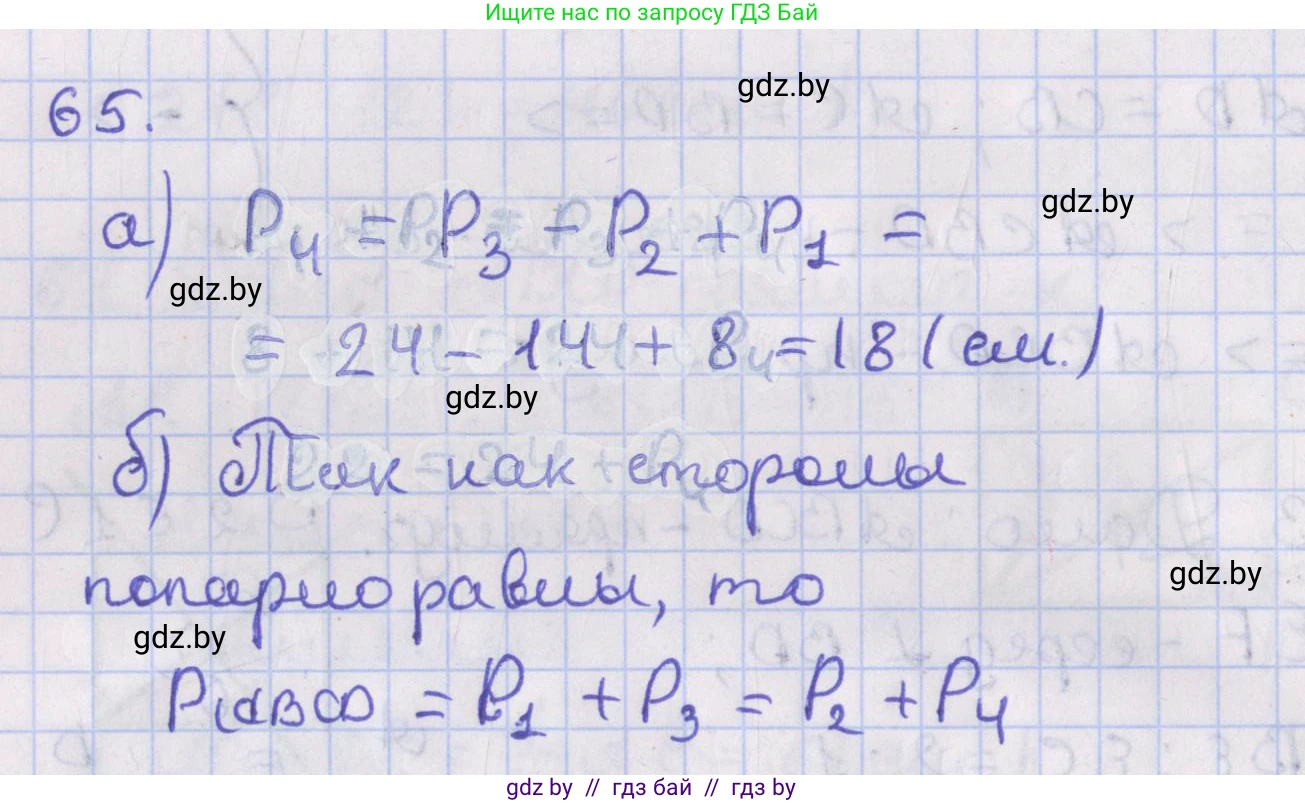 Ищите нас по запросу ГДЗ Бай
gdz.by
65.
gdz.by
а) P₄ = P₃ - P₂ + P₁ =
gdz.by
= 24 - 14 + 8 = 18 (см.)
gdz.by
б) Так как стороны
попарно равны, то
gdz.by
gdz.by
P ABCD = P₁ + P₃ = P₂ + P₄
gdz.by // гдз бай // gdz by